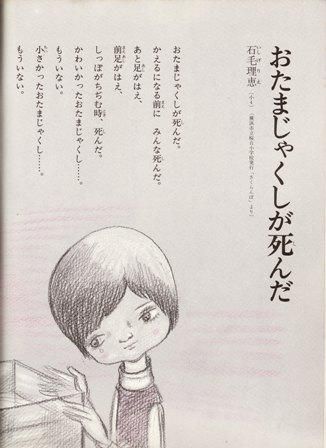 おたまじゃくしが死んだ
石毛理恵
おたまじゃくしが死んだ。
かえるになる前に みんな死んだ。
あと足がはえ、
前足がはえ、
しっぽがちぢむ時、死んだ。
かわいかったおたまじゃくし……。
もういない。
小さかったおたまじゃくし……。
もういない。